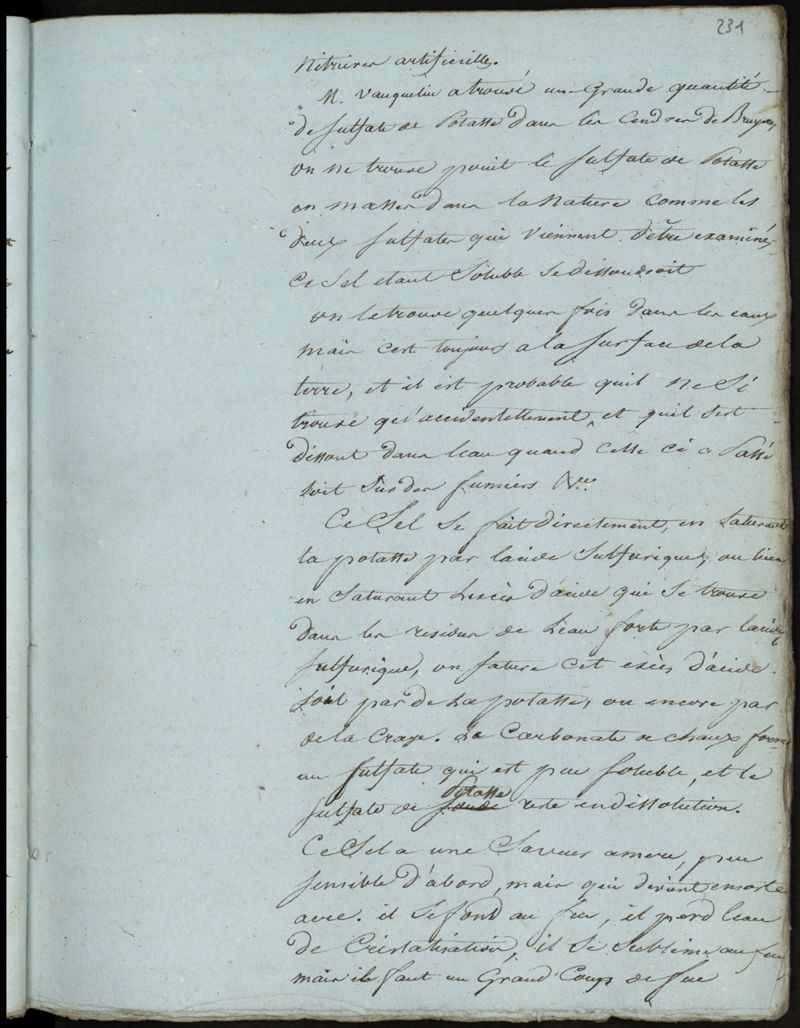 231
Nitrieres artificielles.
M. Vauquelin a trouvé un Grande quantité
de sulfate de Potasse dans les Cendres de Bruyeres
on ne trouve point le sulfate de Potasse
en masses dans la Nature comme les
deux sulfates qui viennent d'être examinés
Ce Sel etant Soluble se dissoudroit
on le trouve quelques fois dans les eaux
mais c'est toujours a la surface de la
terre, et il est probable quil ne Si
trouve qu'accidentellement, et quil s'est
dissout dans l'eau quand cette ci a Passé
soit sur des fumiers
Ce Sel se fait directement, en saturant
la potasse par lacide Sulfurique, ou bien
en Saturant Lexcès d'acide qui se trouve
dans les residus de L'eau forte par lacide
sulfurique, on sature cet excès d'acide
soit par de La potasse, ou encore par
de la Craye. Le Carbonate de chaux forme
un sulfate qui est peu soluble, et le
sulfate de Potasse reste en dissolution.
Ce Sel a une Saveur amere, peu
sensible d'abord, mais qui devient ensuite
acre. il se fond au feu, il perd leau
de Cristalisation, il se sublime au feu
mais il faut un Grand Coup de feu